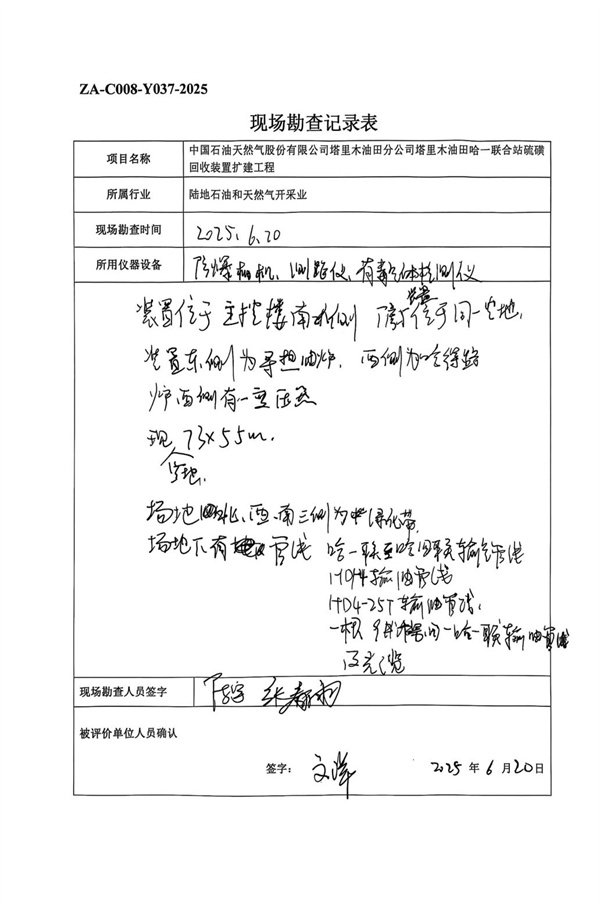 ZA-C008-Y037-2025
现场勘查记录表
项目名称
中国石油天然气股份有限公司塔里木油田分公司塔里木油田哈一联合站硫磺
回收装置扩建工程
所属行业
陆地石油和天然气开采业
现场勘查时间
2025.6.20
所用仪器设备
防爆相机、测距仪、有毒气体检测仪
装置位于主控楼南侧 位于同一空地.
装置东侧为导热油炉. 西侧为哈得路
炉西侧有一变压器
现 73×55m.
空地.
场地北、西、南三侧为绿化带.
场地下有管线 哈一联至哈四联输气管线
HD4输油管线
HD4-25T输油管线.
一根 哈一联输油管线
及光缆
现场勘查人员签字
被评价单位人员确认
签字:
文洋
2025 年 6 月 20 日